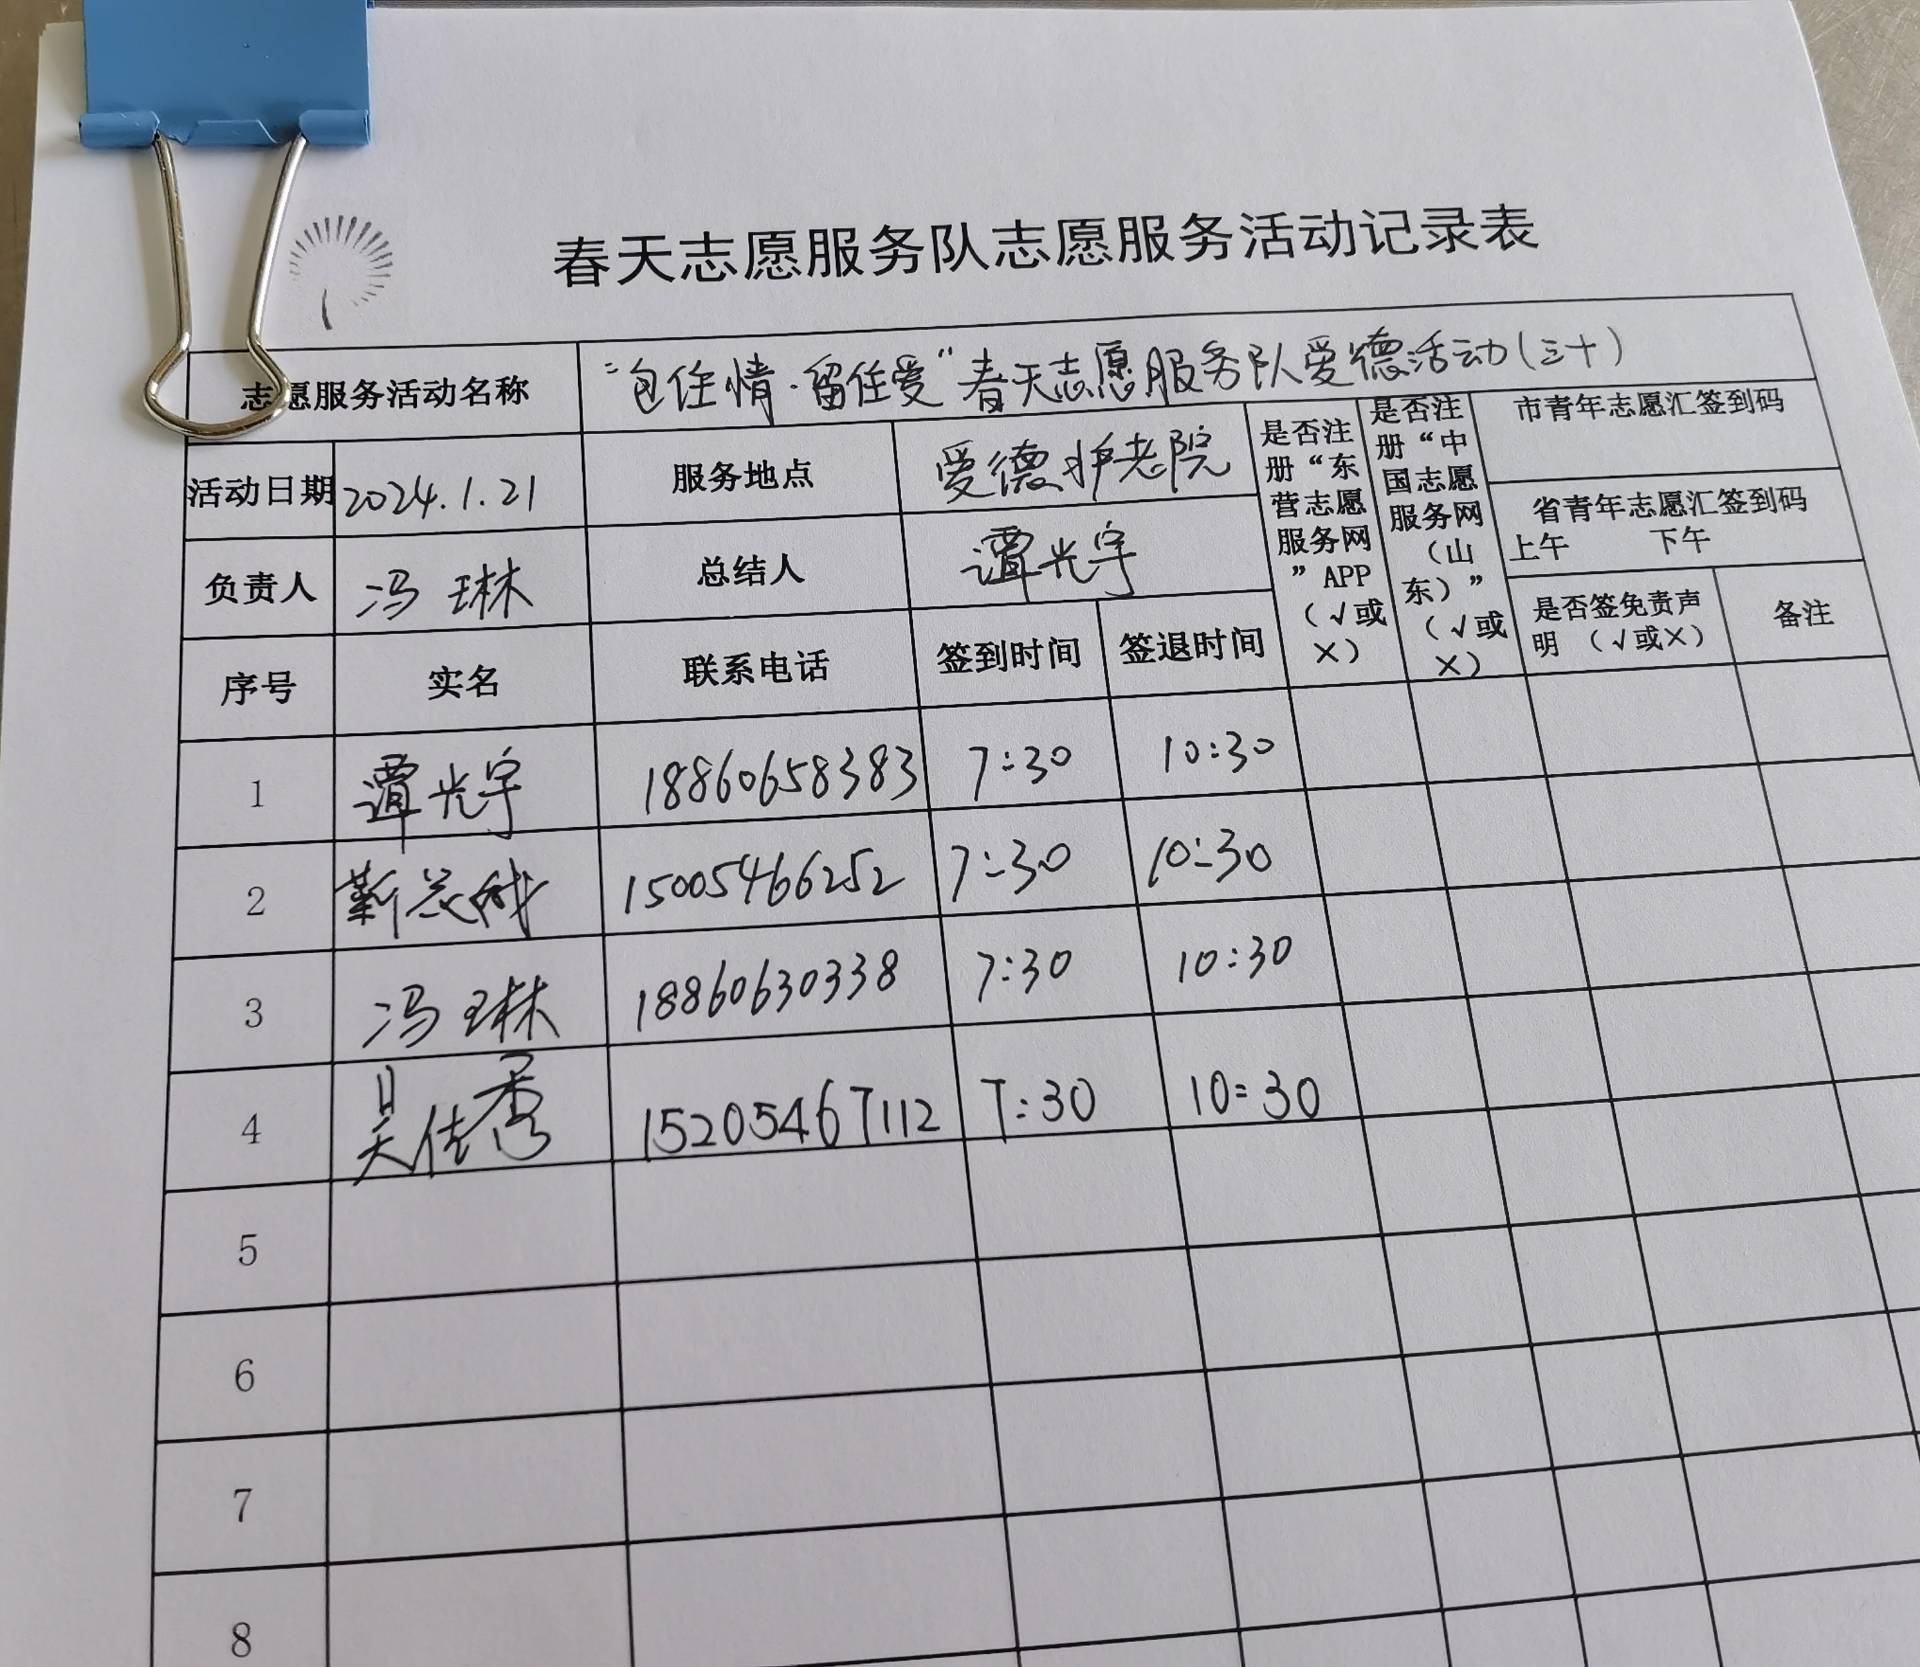 春天志愿服务队志愿服务活动记录表
志愿服务活动名称 “包住情·留住爱”春天志愿服务队爱德活动(三十)
活动日期 2024.1.21 服务地点 爱德护老院 是否注册“东营志愿服务网”APP（√或×） 是否注册“中国志愿服务网（山东）”（√或×） 市青年志愿汇签到码
省青年志愿汇签到码
上午 下午
负责人 冯琳 总结人 谭光宇
序号 实名 联系电话 签到时间 签退时间 是否签免责声明（√或×） 备注
1 谭光宇 18860658383 7:30 10:30
2 15005466252 7:30 10:30
3 冯琳 18860630338 7:30 10:30
4 吴佳秀 15205467112 7:30 10:30
5
6
7
8